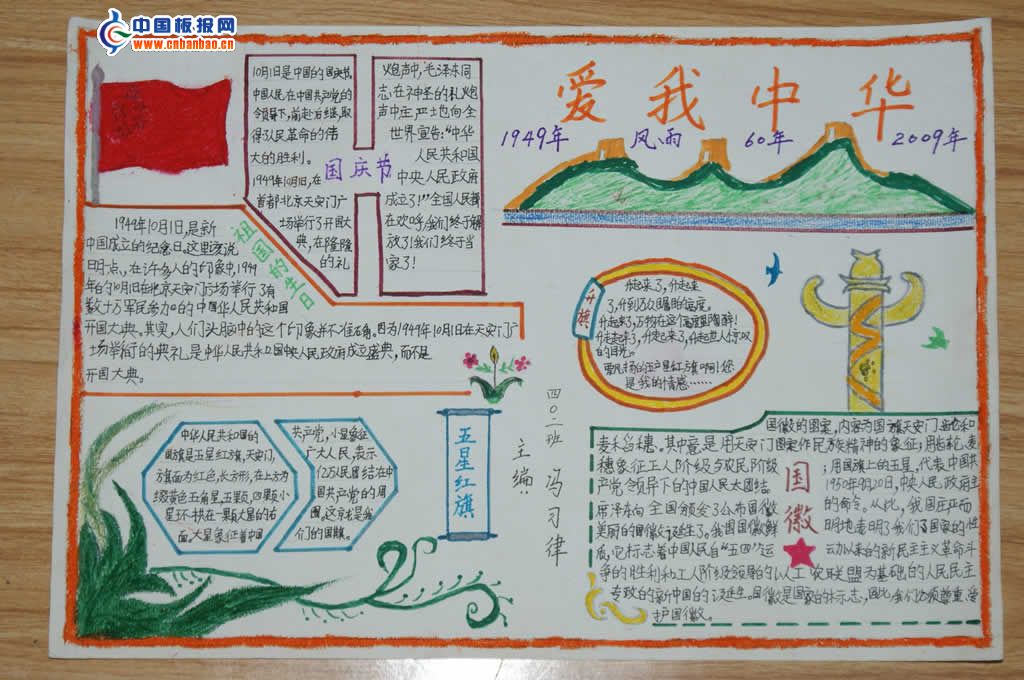 中国板报网
www.cnbanbao.cn
爱我中华
1949年 风雨 60年 2009年
10月1日是中国的国庆节,
中国人民在中国共产党的
领导下,前赴后继,取
得了人民革命的伟
大的胜利。
1949年10月1日,在
首都北京天安门广
场举行了开国大
典,在隆隆
的礼
炮声中,毛泽东同
志,在神圣的礼炮
声中庄严地向全
世界宣告:“中华
人民共和国
中央人民政府
成立了!”全国人民都
在欢呼,我们终于解
放了!我们终于当
家了!
国庆节
祖国的生日
1949年10月1日,是新
中国成立的纪念日。这里该说
明一点,在许多人的印象中,1949
年的10月1日在北京天安门广场举行了有
数十万军民参加的中国华人民共和国
开国大典。其实,人们头脑中的这个印象并不准确。因为1949年10月1日在天安门广
场举行的典礼是中华人民共和国中央人民政府成立盛典,而不是
开国大典。
升旗
升起来了,升起来
了,升到万众瞩目的高度。
的目光。
是我的情感……
中华人民共和国的
国旗是五星红旗,天安门,
旗面为红色,长方形,在上方为
缀黄色五角星,五颗,四颗小
星环拱在一颗大星的右
面。大星象征着中国
共产党,小星象征
广大人民,表示
亿万人民团结在中
国共产党的周
围。这就是我
们的国旗。
五星红旗
四〇二班 冯习律
主编:
国徽
国徽的图案,内容为国旗天安门齿轮和
麦禾谷穗。其中意是用天安门图案作民族精神的象征;用齿轮,麦
穗象征工人阶级与农民阶级
;用国旗上的五星,代表中国共
产党领导下的中国人民大团结。
1950年9月20日,中央人民政府主
席泽东向全国颁发了公布国徽
的命令。从此,我国庄严而
美丽的国徽诞生了。我国国徽鲜
明地表明了我们国家的性
质,它标志着中国人民自“五四”运
动以来的新民主主义革命斗
争的胜利和工人阶级领导的以人工农联盟为基础的人民民主
专政的新中国的诞生。国徽是国家的标志,因此,我们必须尊重,爱
护国徽。